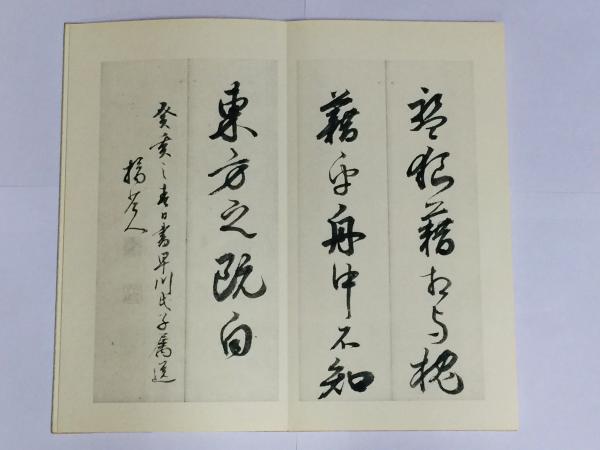 盤狼藉相与枕
藉乎舟中不知
東方之既白
癸亥之春日書早川氏子属送